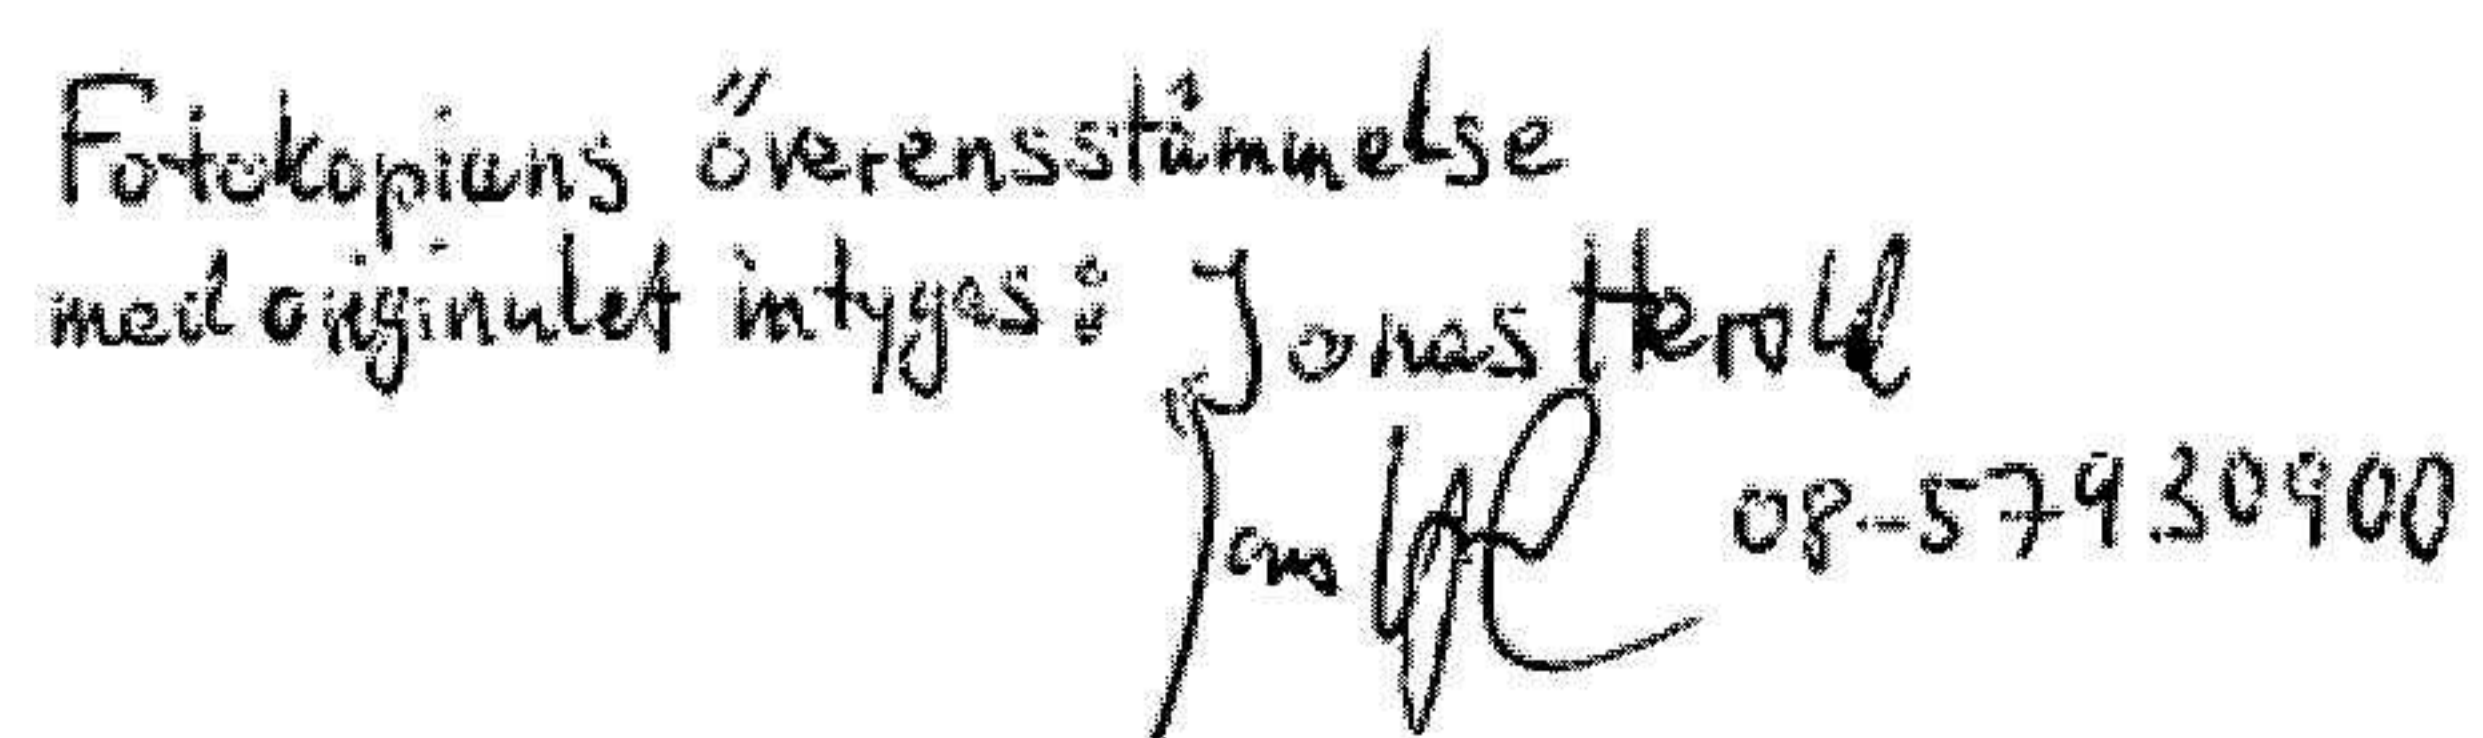 Fotokopians överensstämmelse
med originalet intygas: Jonas Herold
Jonas 08-57930900